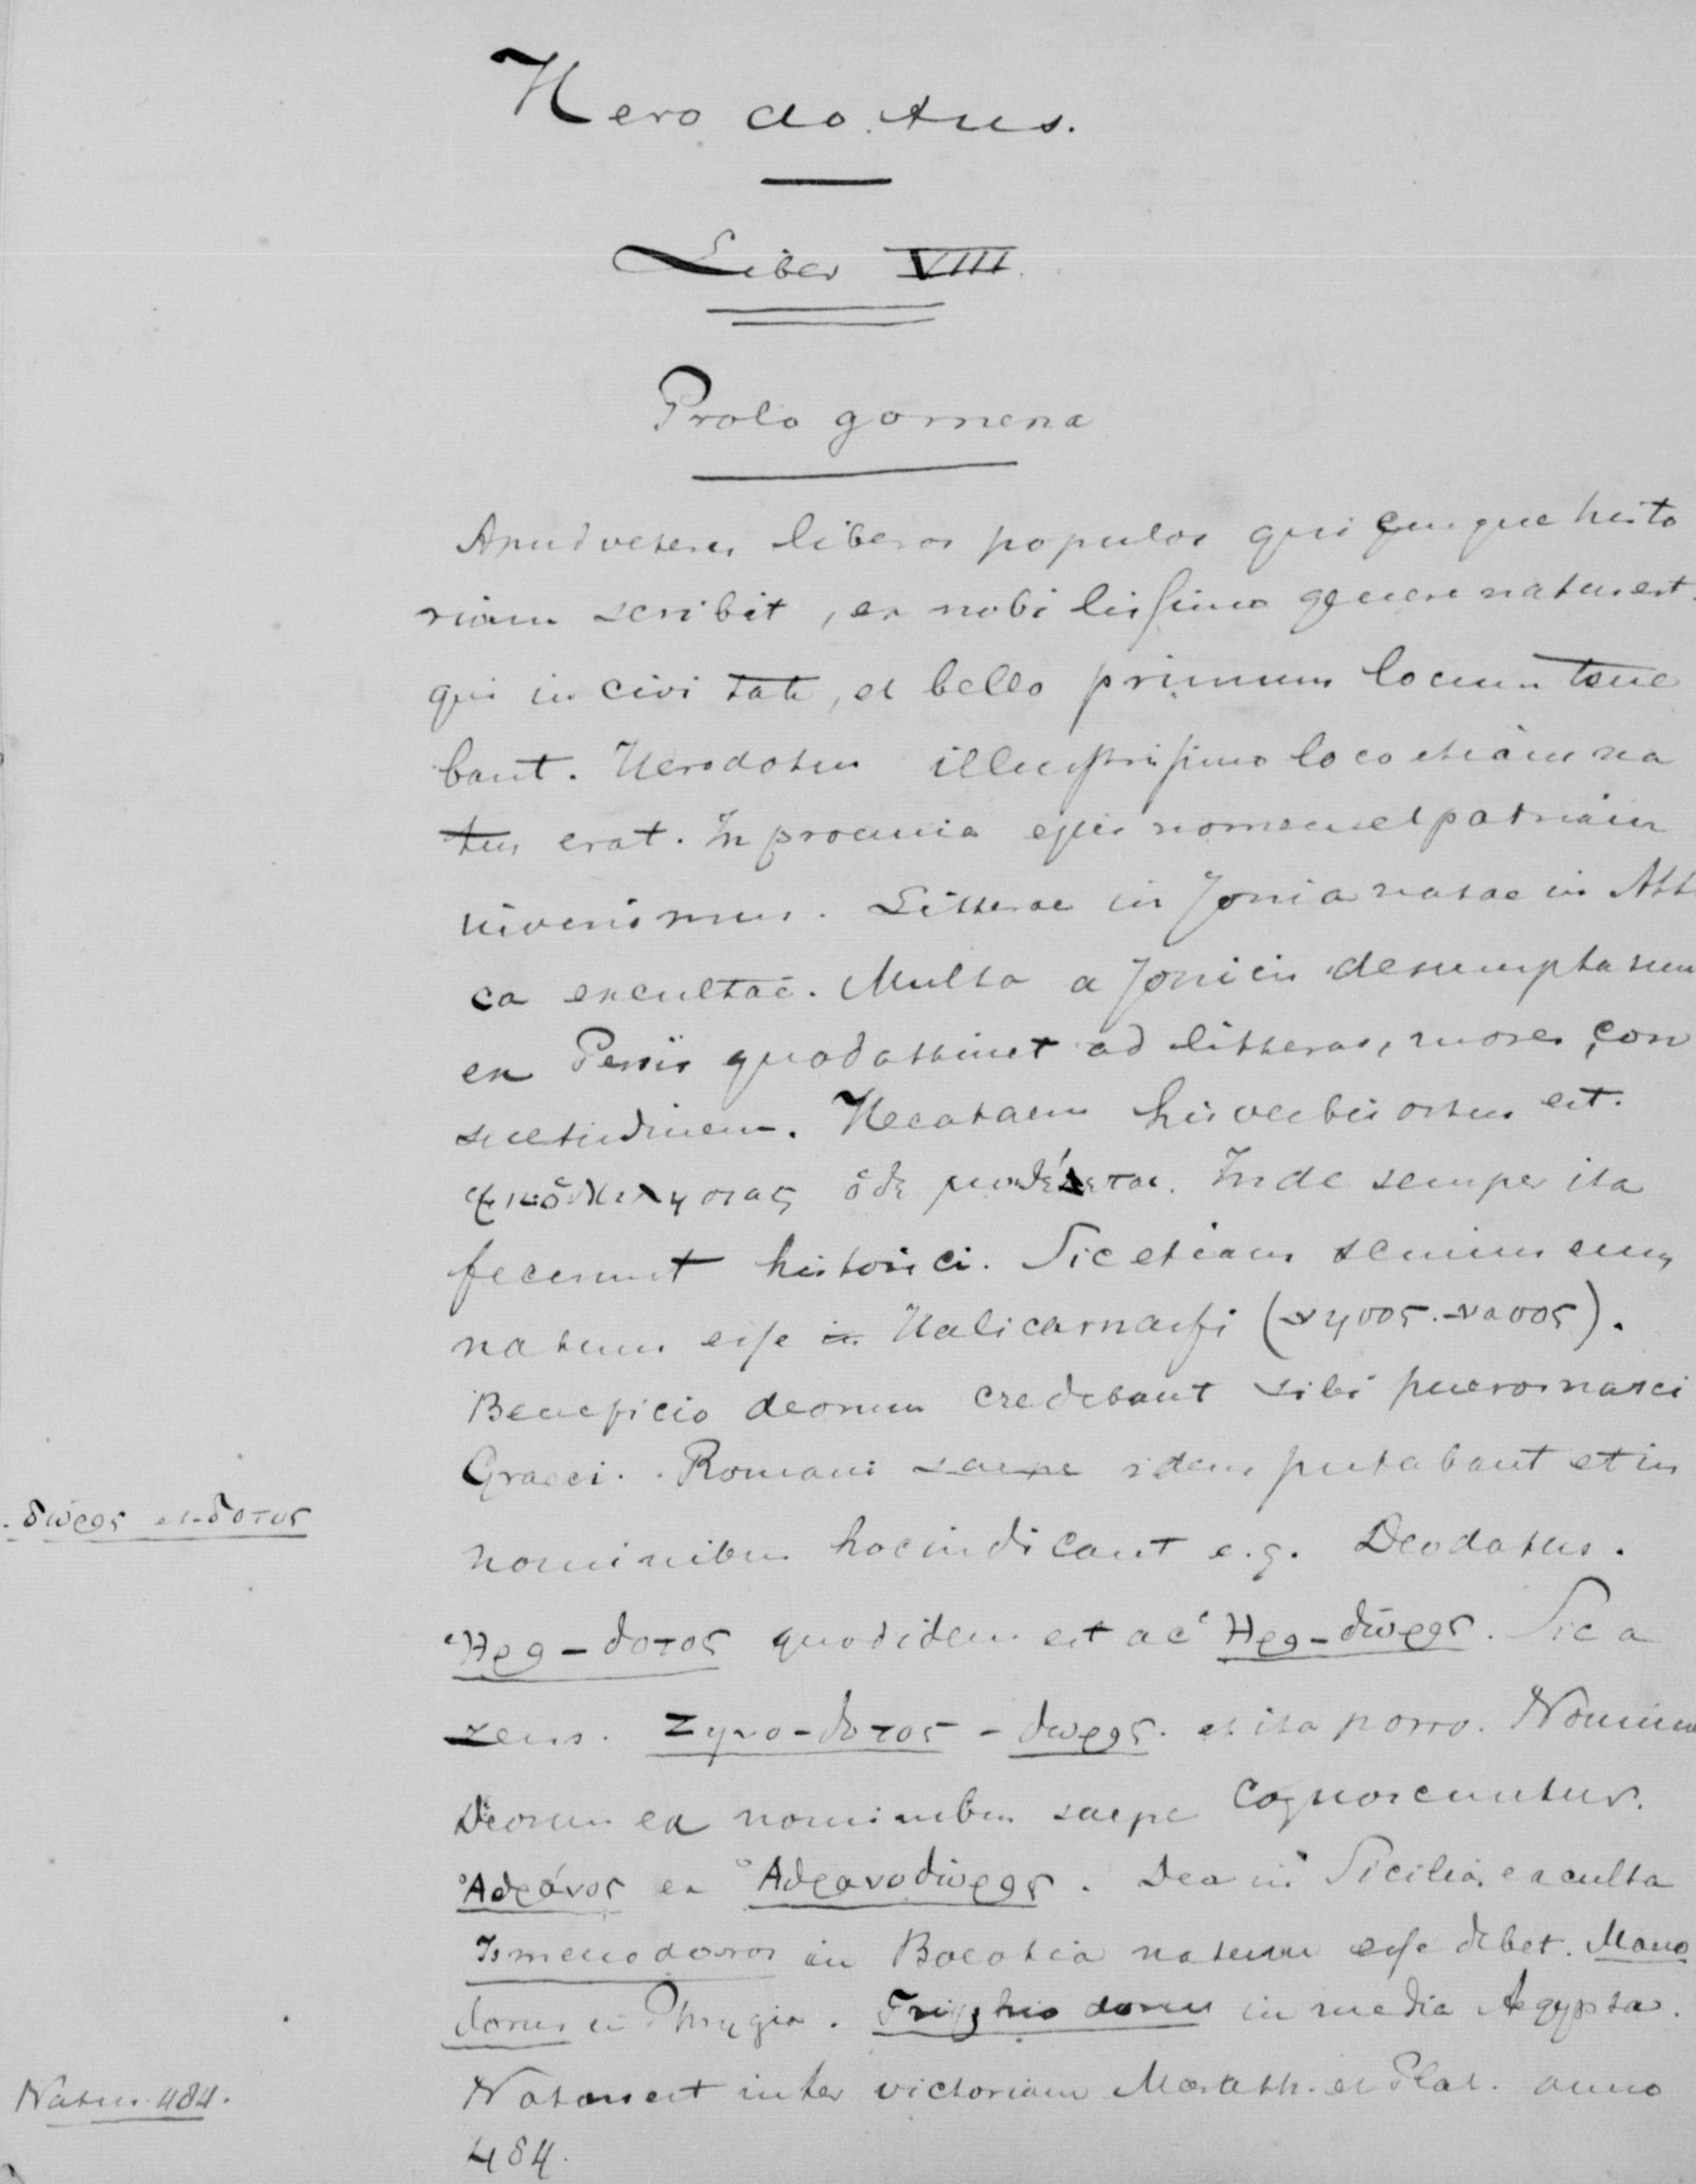 Herodotus.
Liber VIII.
Prolegomena
Apud veteres liberos populos quicunque histo
riam scribit, ex nobilissimo genere natus est.
qui in civitate, et bello primum locum tene
bant. Herodotus illustrissimo loco etiam na
tus erat. In prooemio ejus nomen et patriam
invenimus. Litterae in Jonia natae in Atti
ca excultae. Multa a Jonicis desumpta sunt
ex Persis quod attinet ad litteras, mores, con
suetudinem. Hecataeus his verbis orsus est.
ὅδε Inde semper ita
fecerunt historici. Sic etiam scimus eum
natum esse in Halicarnassi (νησος. νασος).
Beneficio deorum credebant sibi pueros nasci
Graeci. Romani saepe idem putabant et in
δῶρος et δοτος
nominibus hoc indicant e.g. Deodatus.
Ἡρο-δοτος quod idem est ac Ἡρο-δῶρος. Sic a
Zeus. Ζηνο-δοτος - δωρος. et ita porro. Nomina
Deorum ex nominibus saepe cognoscuntur.
Ἀδράνος ex Ἀδρανοδώρος. Dea in Sicilia exculta
Ismenodoros in Boeotia natum esse debet. Mano
dorus in Phrygia. Tryphiodorus in media Aegypto.
Natus est inter victoriam Marath. et Plat. anno
Natus 484.
484.